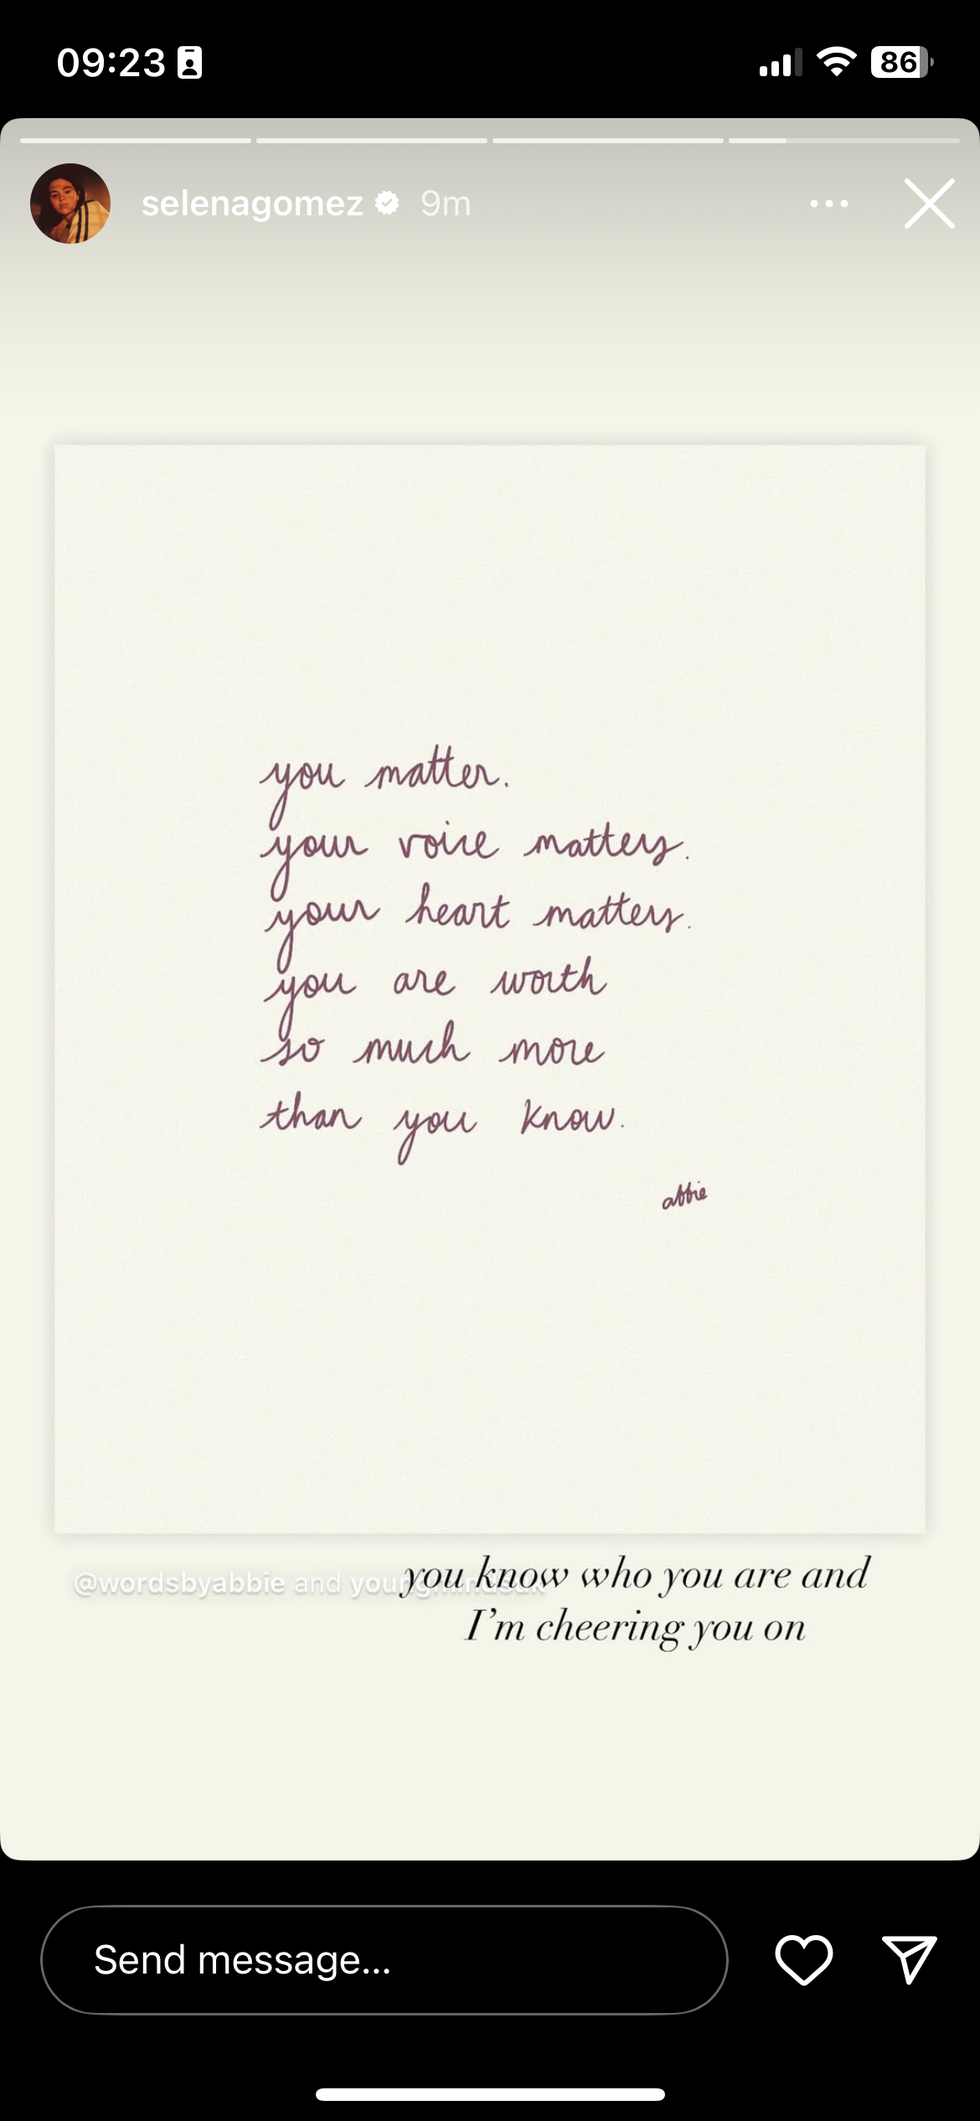 09:23
86
selenagomez 9m
you matter.
your voice matters.
your heart matters.
you are worth
so much more
than you know.
abbie
@wordsbyabbie and
you know who you are and
I'm cheering you on
Send message...